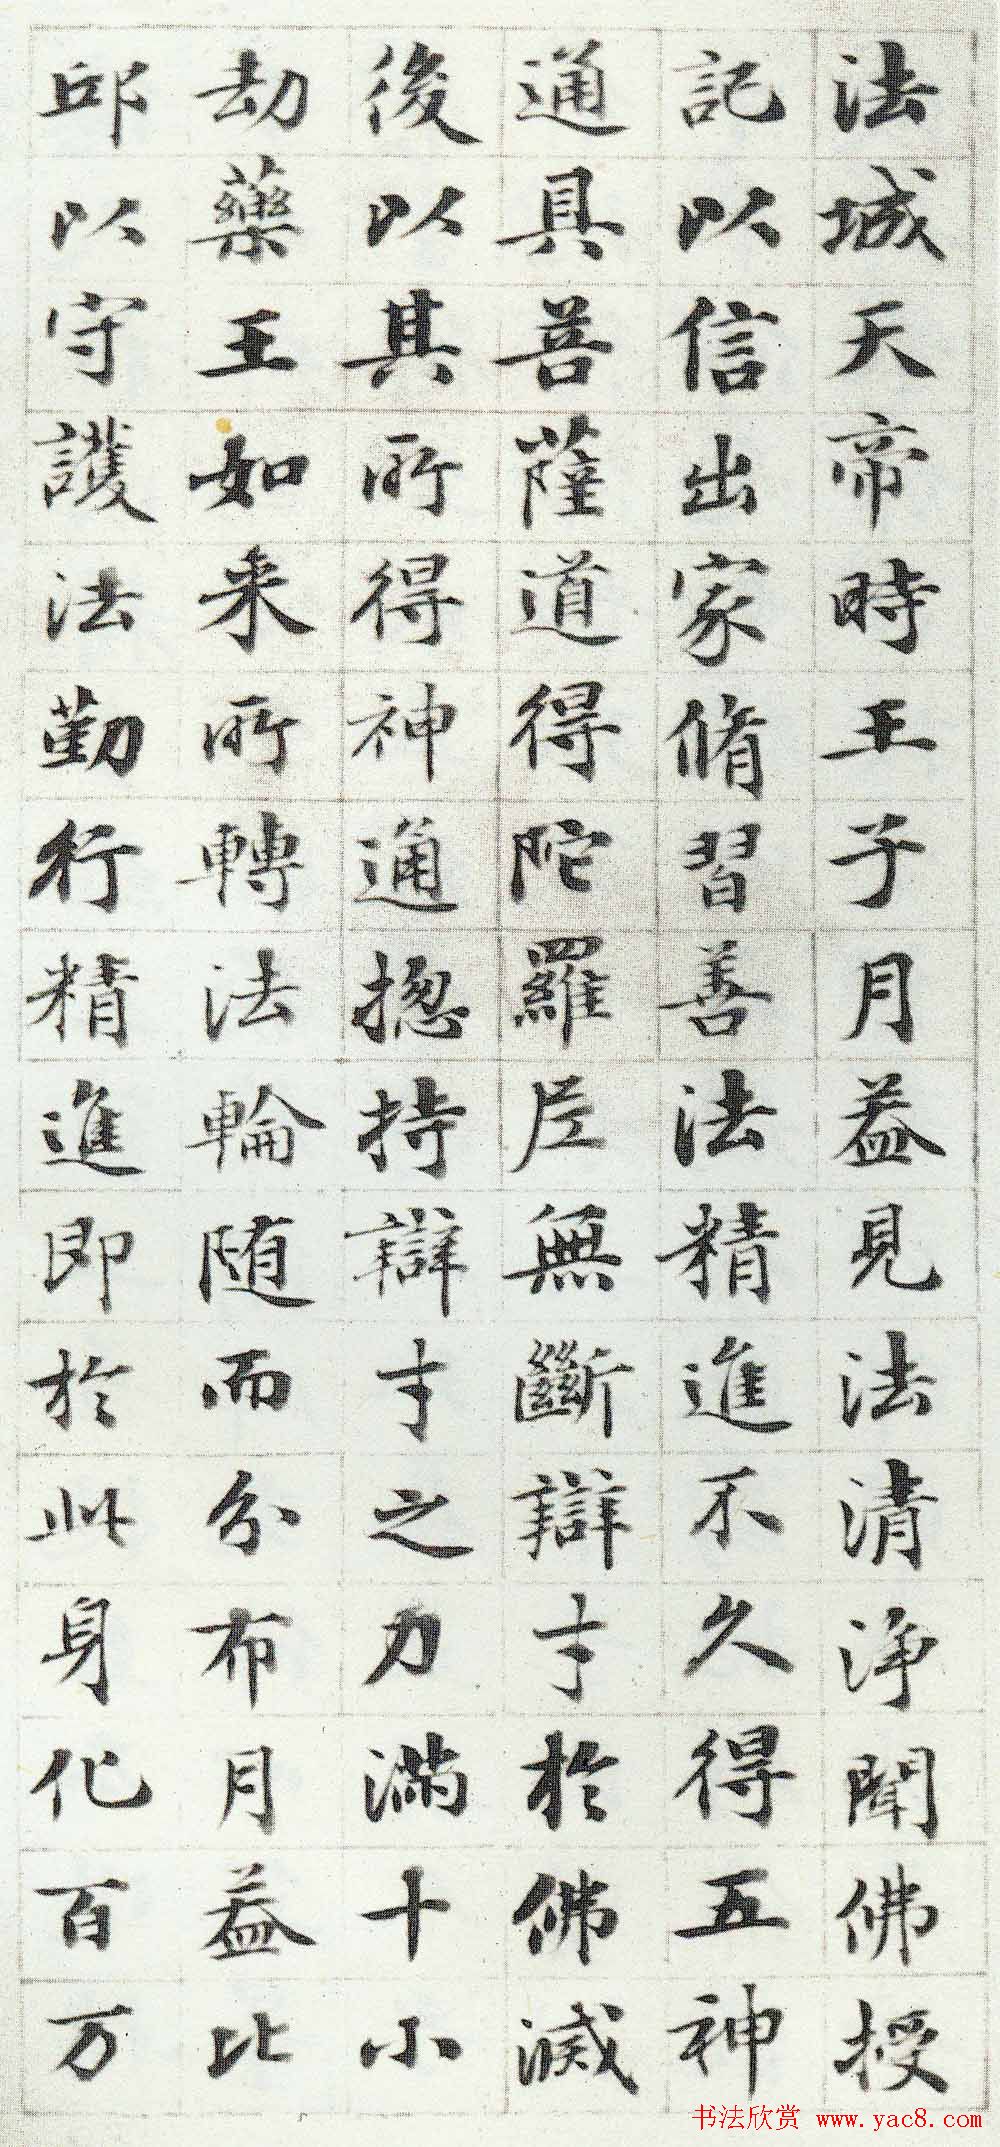 法城天帝時王子月盖見法清淨聞佛授
記以信出家脩習善法精進不久得五神
通具菩薩道得陀羅尼無斷辯才於佛滅
後以其所得神通揔持辯才之力滿十小
劫藥王如来所轉法輪随而分布月盖比
邱以守護法勤行精進即於此身化百万
书法欣赏 www.yac8.com